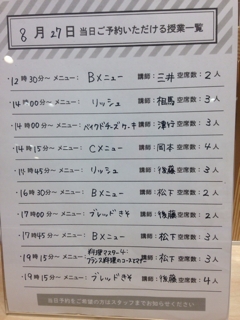 8月27日 当日ご予約いただける授業一覧
・12時30分〜 メニュー: Bメニュー 講師: 三井 空席数: 2人
・14時00分〜 メニュー: リッシュ 講師: 相馬 空席数: 3人
・14時00分〜 メニュー: ベイクドチーズケーキ 講師: 津行 空席数: 3人
・14時15分〜 メニュー: Cメニュー 講師: 岡本 空席数: 4人
・14時45分〜 メニュー: リッシュ 講師: 後藤 空席数: 3人
・16時30分〜 メニュー: Bメニュー 講師: 松下 空席数: 2人
・17時00分〜 メニュー: ブレッドきそ 講師: 後藤 空席数: 2人
・17時45分〜 メニュー: Bメニュー 講師: 松下 空席数: 3人
・19時15分〜 メニュー: 料理マスター4: フランス料理のコース 講師: 松下 空席数: 3人
・19時15分〜 メニュー: ブレッドきそ 講師: 後藤 空席数: 4人
当日予約をご希望の方はスタッフまでお知らせください